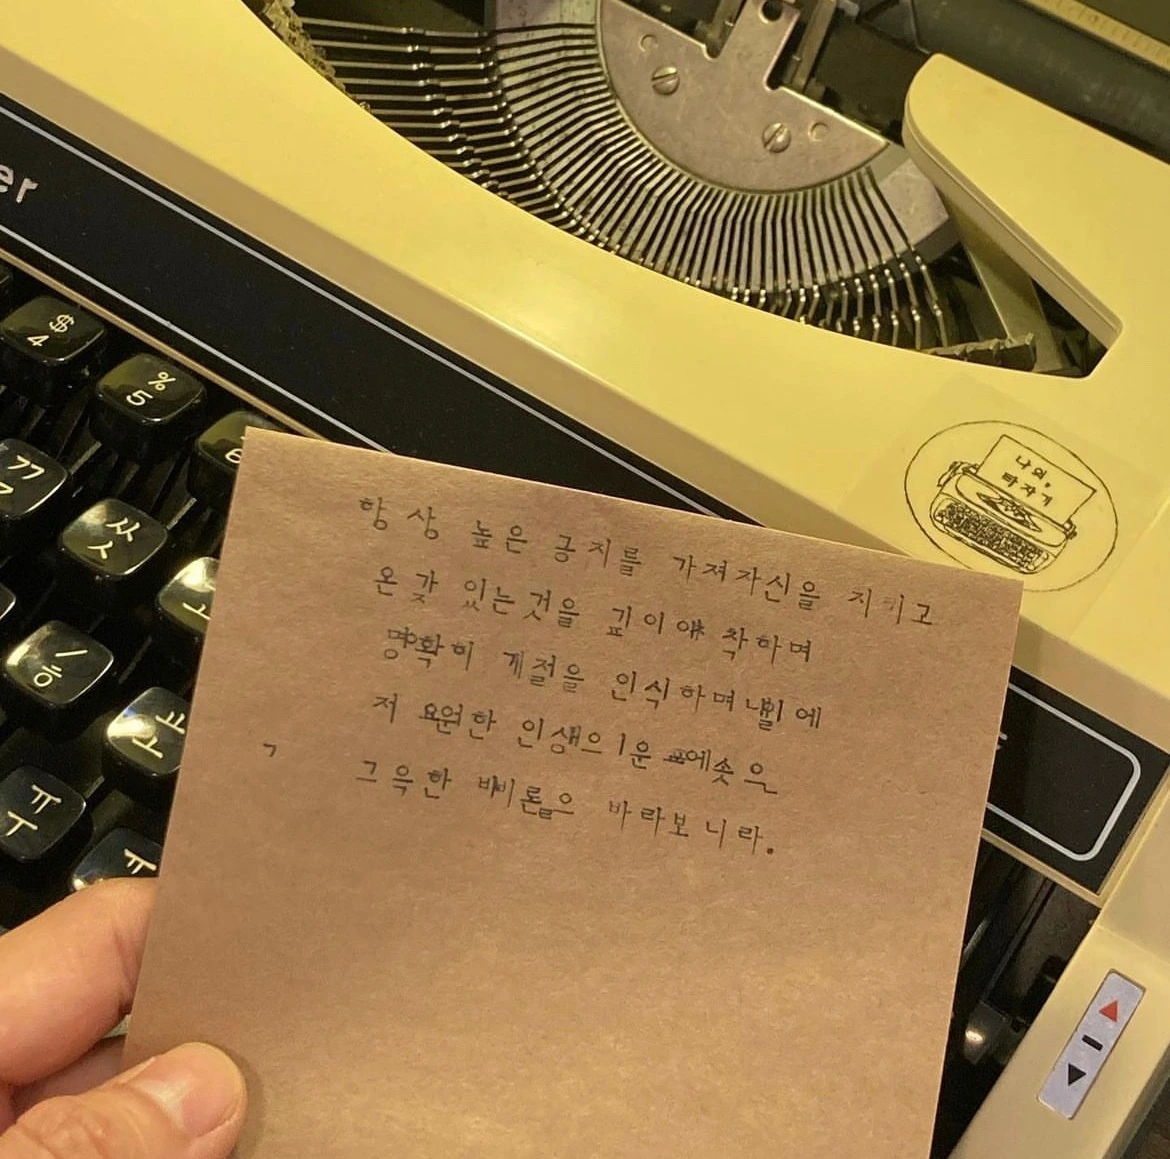 er
$
4
%
5
6
ㄲ
ㄱ
ㅆ
ㅅ
/
ㅎ
ㅛ
ㅗ
ㅠ
ㅜ
ㅠ
나의,
타자기
항상 높은 긍지를 가져자신을 지키고
온갖 있는것을 깊이 착하며
명확히 계절을 인식하며 에
저 한 인생으 운 솟으
ㄱ
그윽한 으 바라보니라.